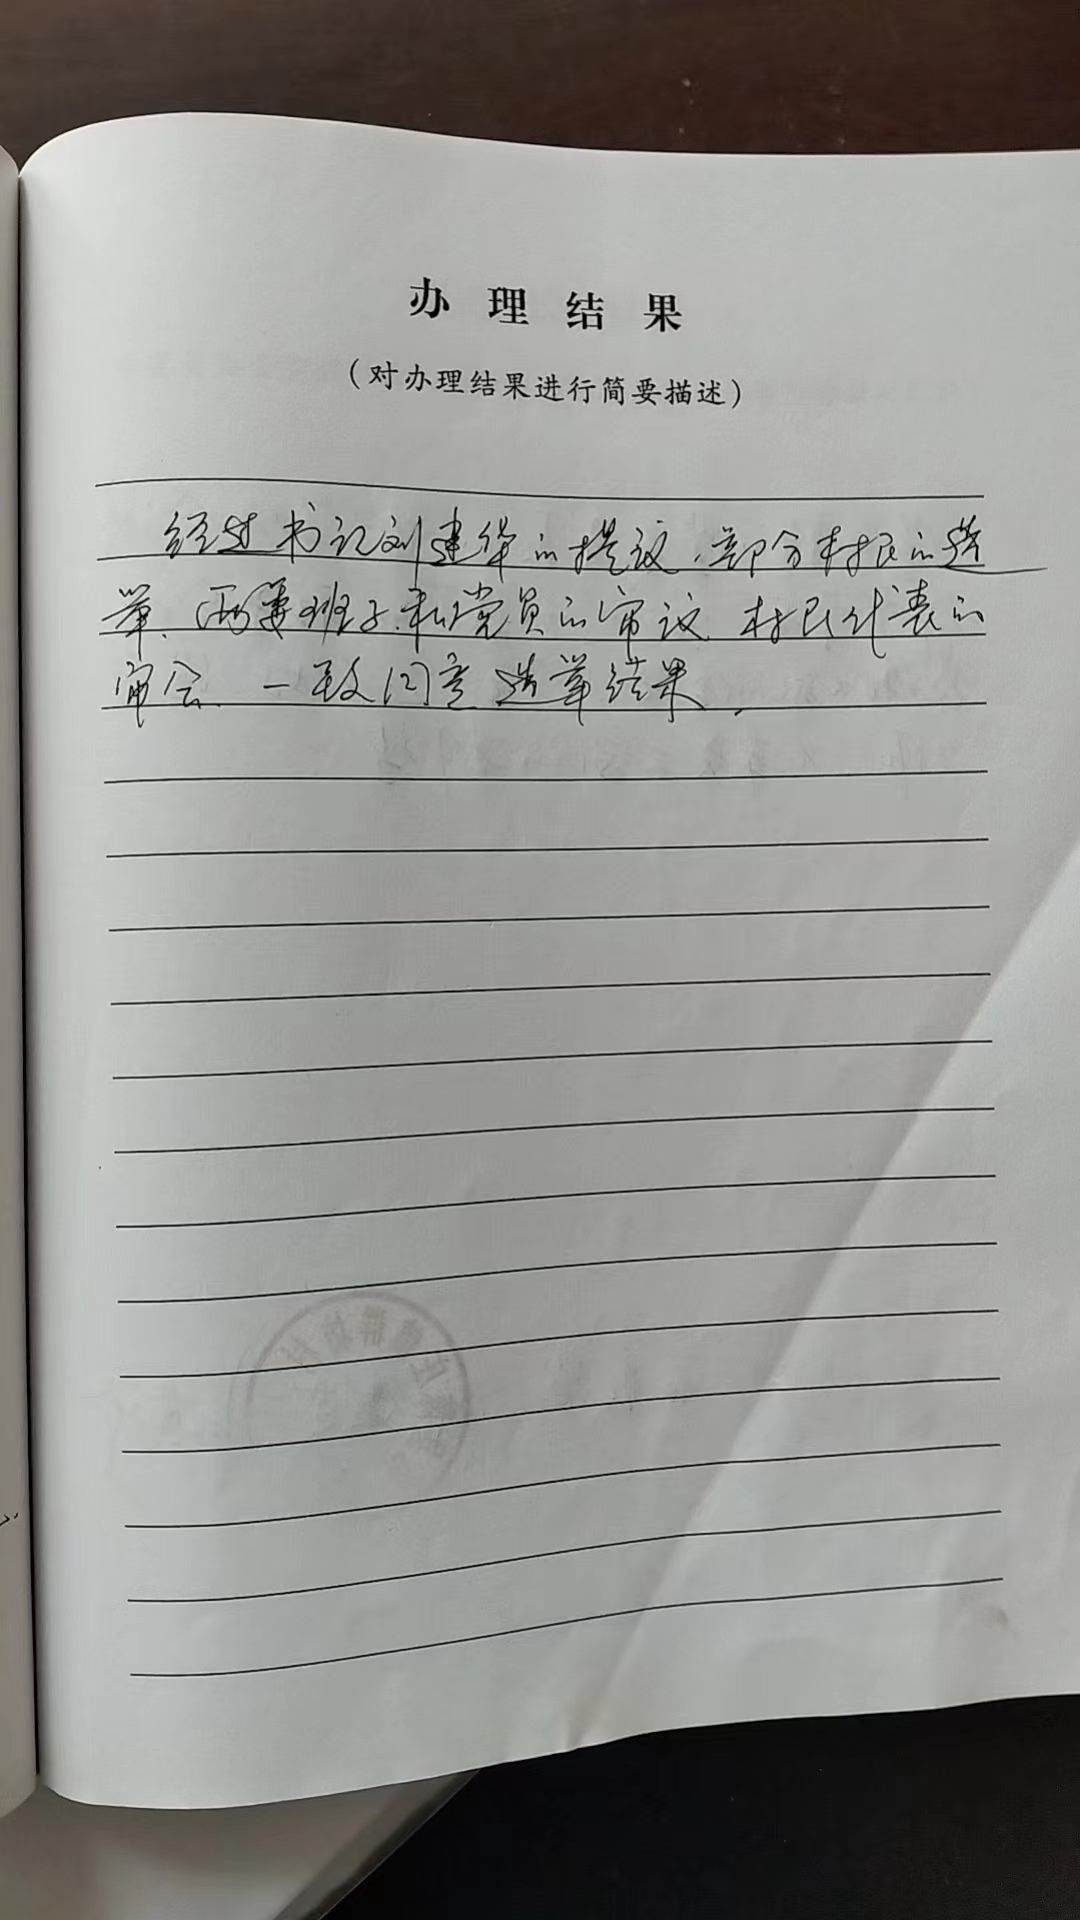 办理结果
（对办理结果进行简要描述）
经过书记刘建华的提议、部分村民的选
举、两委班子和党员的审议 村民代表的
审会、一致同意选举结果。